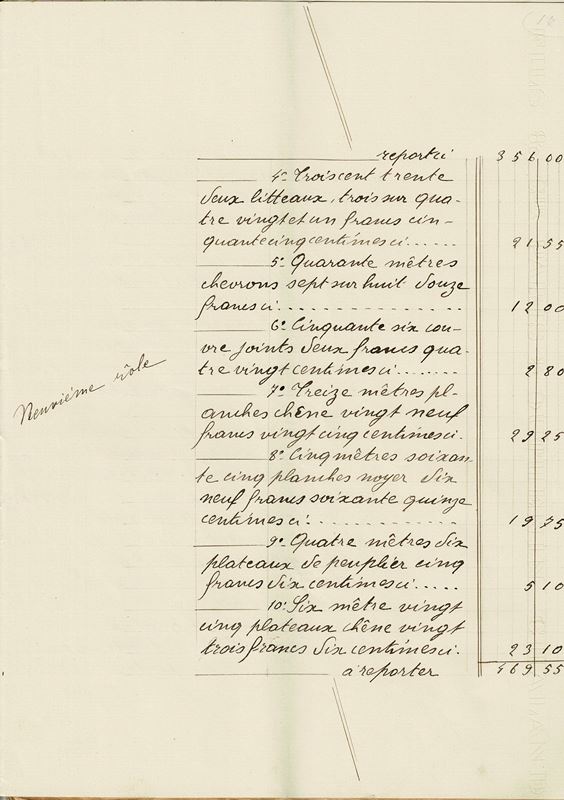 18
report ci 356 00
4º Trois cent trente
deux litteaux, trois sur qua-
tre vingt et un francs cin-
quante cinq centimes ci...... 21 55
5º Quarante mêtres
chevrons sept sur huit douze
francs ci................ 12 00
6º Cinquante six cou-
vre joints deux francs qua-
tre vingt centimes ci....... 2 80
7º Treize mêtres pl-
anches chêne vingt neuf
francs vingt cinq centimes ci. 29 25
8º Cinq mêtres soixan-
te cinq planches noyer dix
neuf francs soixante quinze
centimes ci............ 19 75
9º Quatre mêtres dix
plateaux de peuplier cinq
francs dix centimes ci..... 5 10
10º Six mêtre vingt
cinq plateaux chêne vingt
trois francs dix centimes ci. 23 10
à reporter 469 55
Neuvième rôle